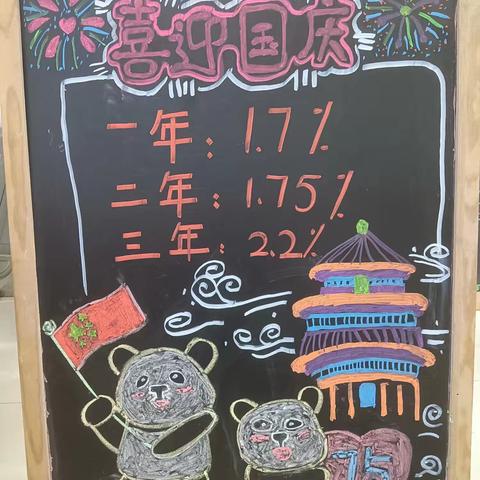 喜迎国庆
一年：1.7%
二年：1.75%
三年：2.2%
75